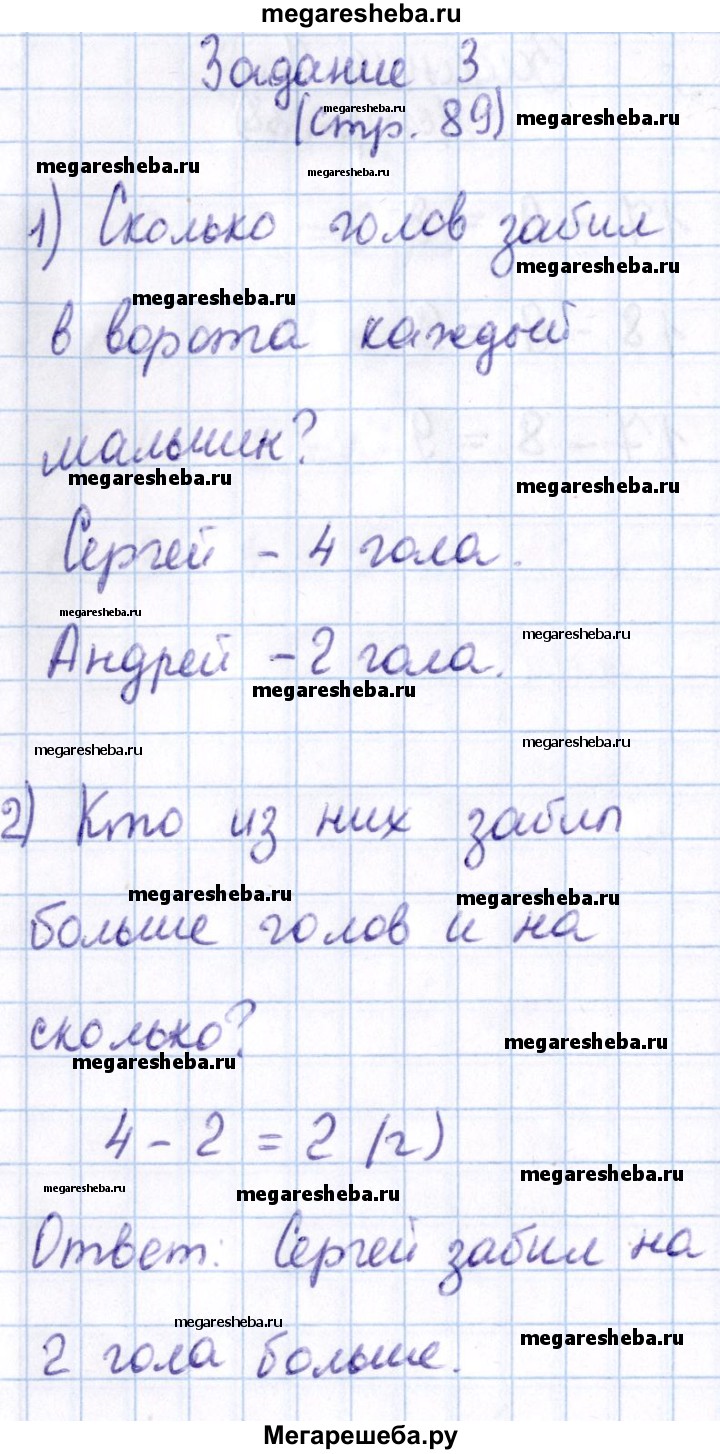 megaresheba.ru
Задание 3
megaresheba.ru
(стр. 89)
megaresheba.ru
megaresheba.ru
megaresheba.ru
1) Сколько голов забил
megaresheba.ru
megaresheba.ru
в ворота каждый
мальчик?
megaresheba.ru
megaresheba.ru
Сергей - 4 гола.
megaresheba.ru
megaresheba.ru
Андрей - 2 гола.
megaresheba.ru
megaresheba.ru
megaresheba.ru
2) Кто из них забил
megaresheba.ru
megaresheba.ru
больше голов и на
сколько?
megaresheba.ru
megaresheba.ru
4 - 2 = 2 (г)
megaresheba.ru
megaresheba.ru
megaresheba.ru
Ответ: Сергей забил на
megaresheba.ru
megaresheba.ru
2 гола больше.
Мегарешеба.ру